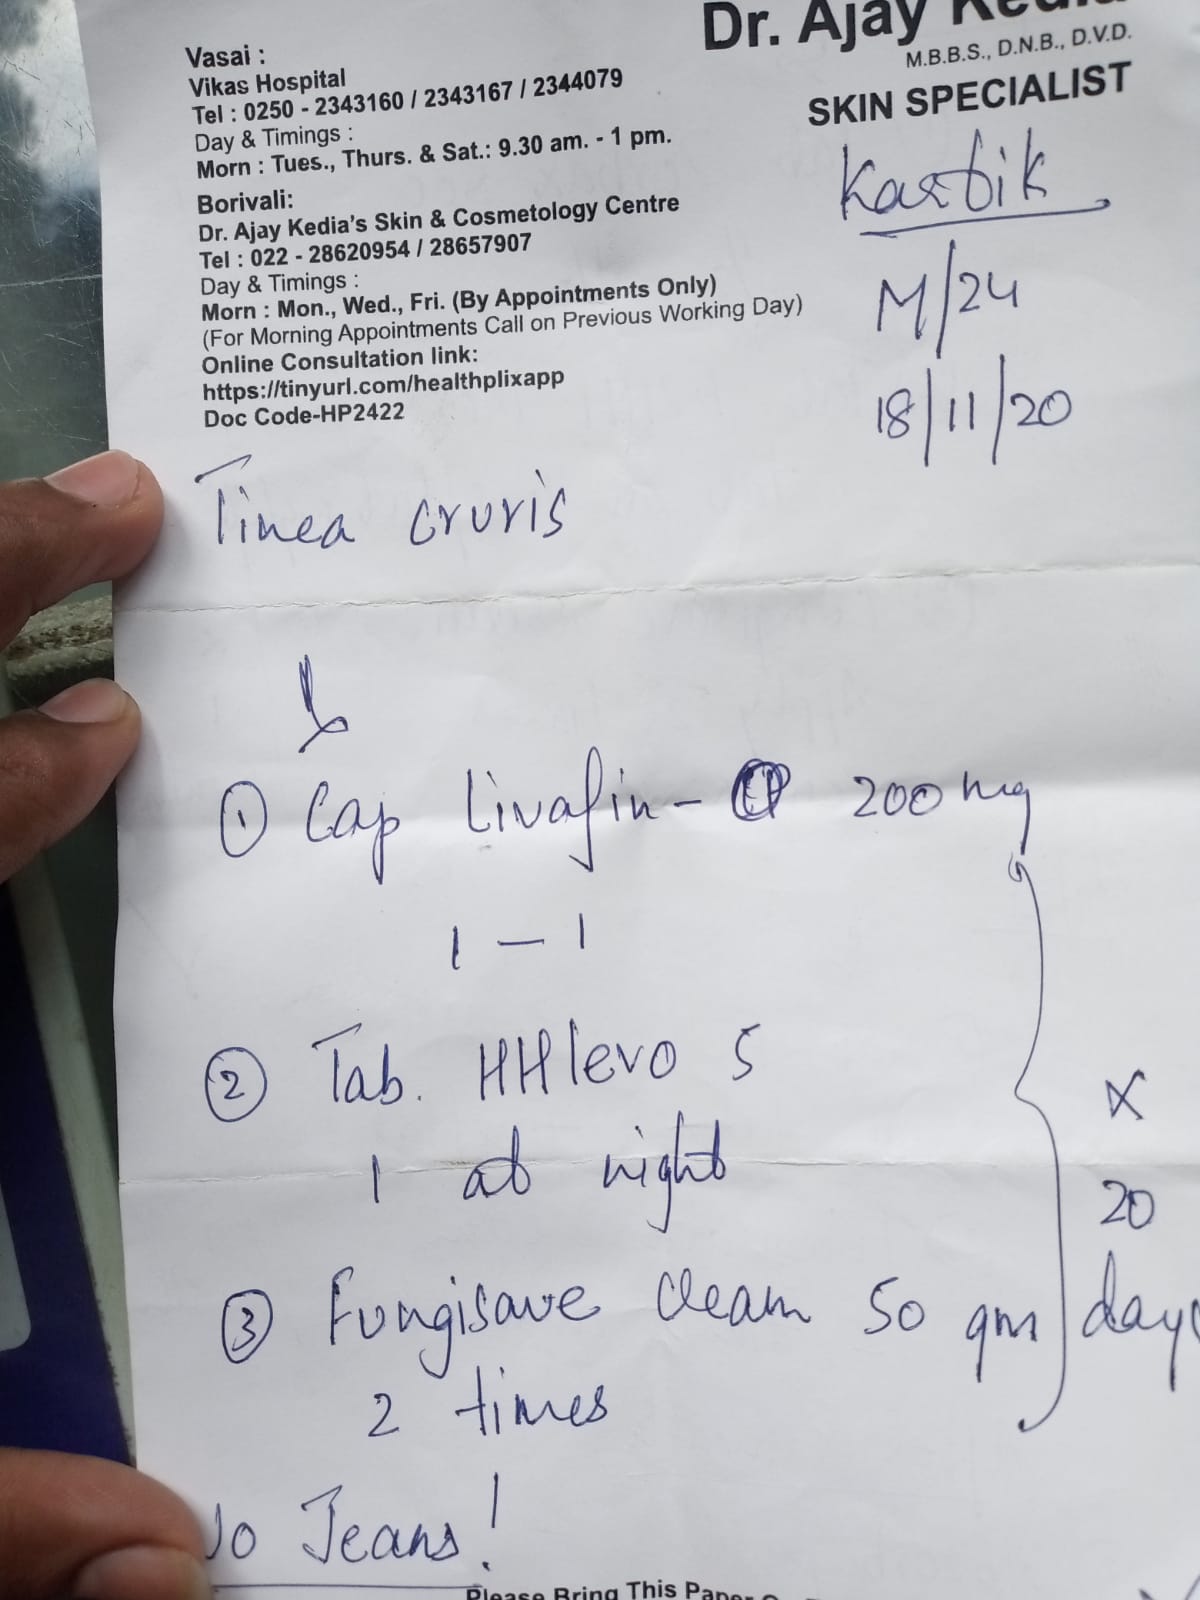 Dr. Ajay Kedia
M.B.B.S., D.N.B., D.V.D.
SKIN SPECIALIST
Vasai :
Vikas Hospital
Tel : 0250 - 2343160 / 2343167 / 2344079
Day & Timings :
Morn : Tues., Thurs. & Sat.: 9.30 am. - 1 pm.
Borivali:
Dr. Ajay Kedia's Skin & Cosmetology Centre
Tel : 022 - 28620954 / 28657907
Day & Timings :
Morn : Mon., Wed., Fri. (By Appointments Only)
(For Morning Appointments Call on Previous Working Day)
Online Consultation link:
https://tinyurl.com/healthplixapp
Doc Code-HP2422
Kartik
M/24
18/11/20
Tinea cruris
① Cap Livafin- 200 mg
1 - 1
② Tab. HHlevo 5
1 at night
③ Fungisave cream 50 gm
2 times
x
20
days
No Jeans!
Please Bring This Paper